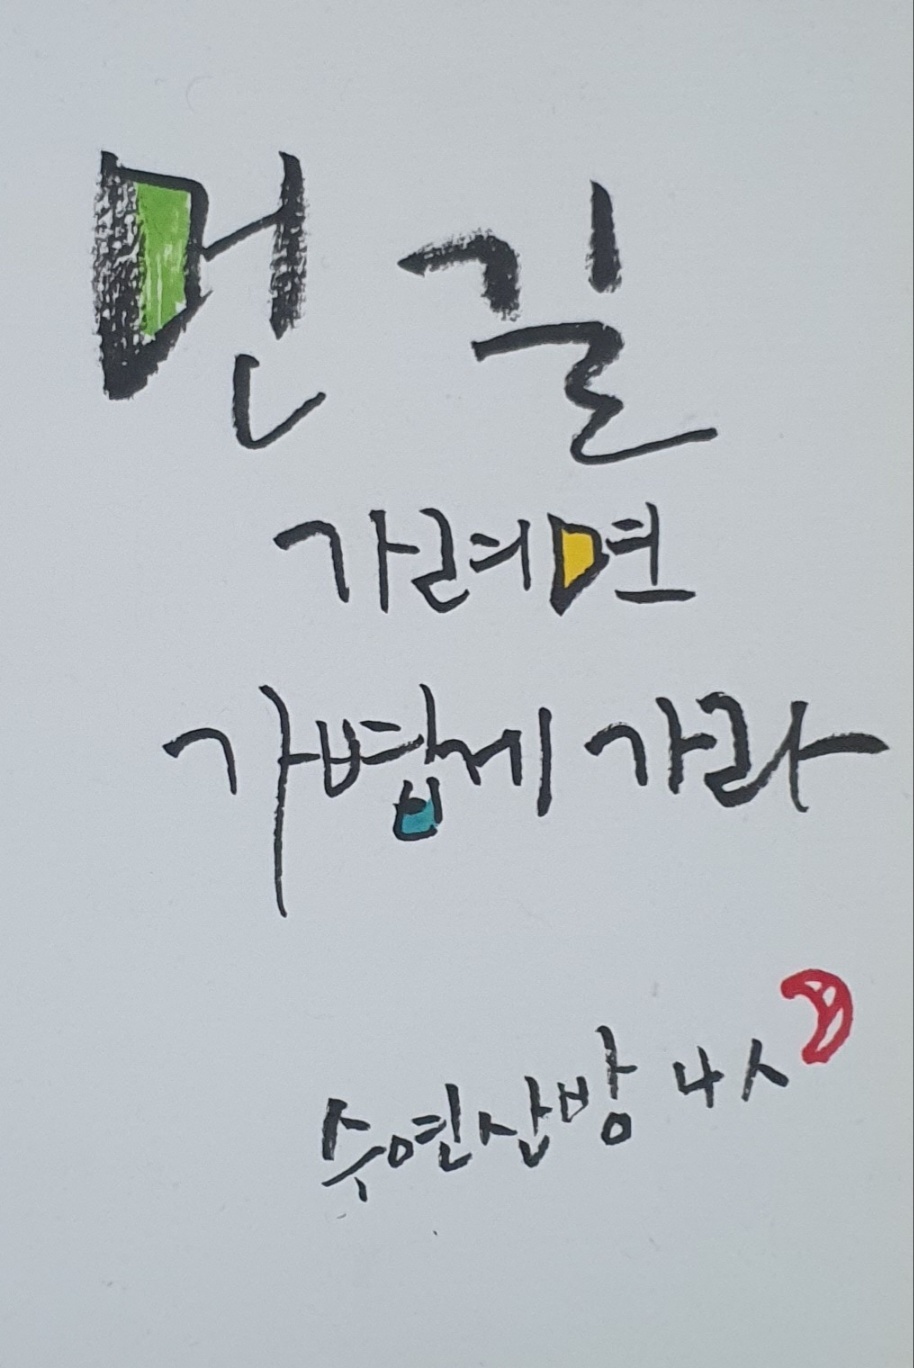 먼 길
가려면
가볍게 가라
수연산방